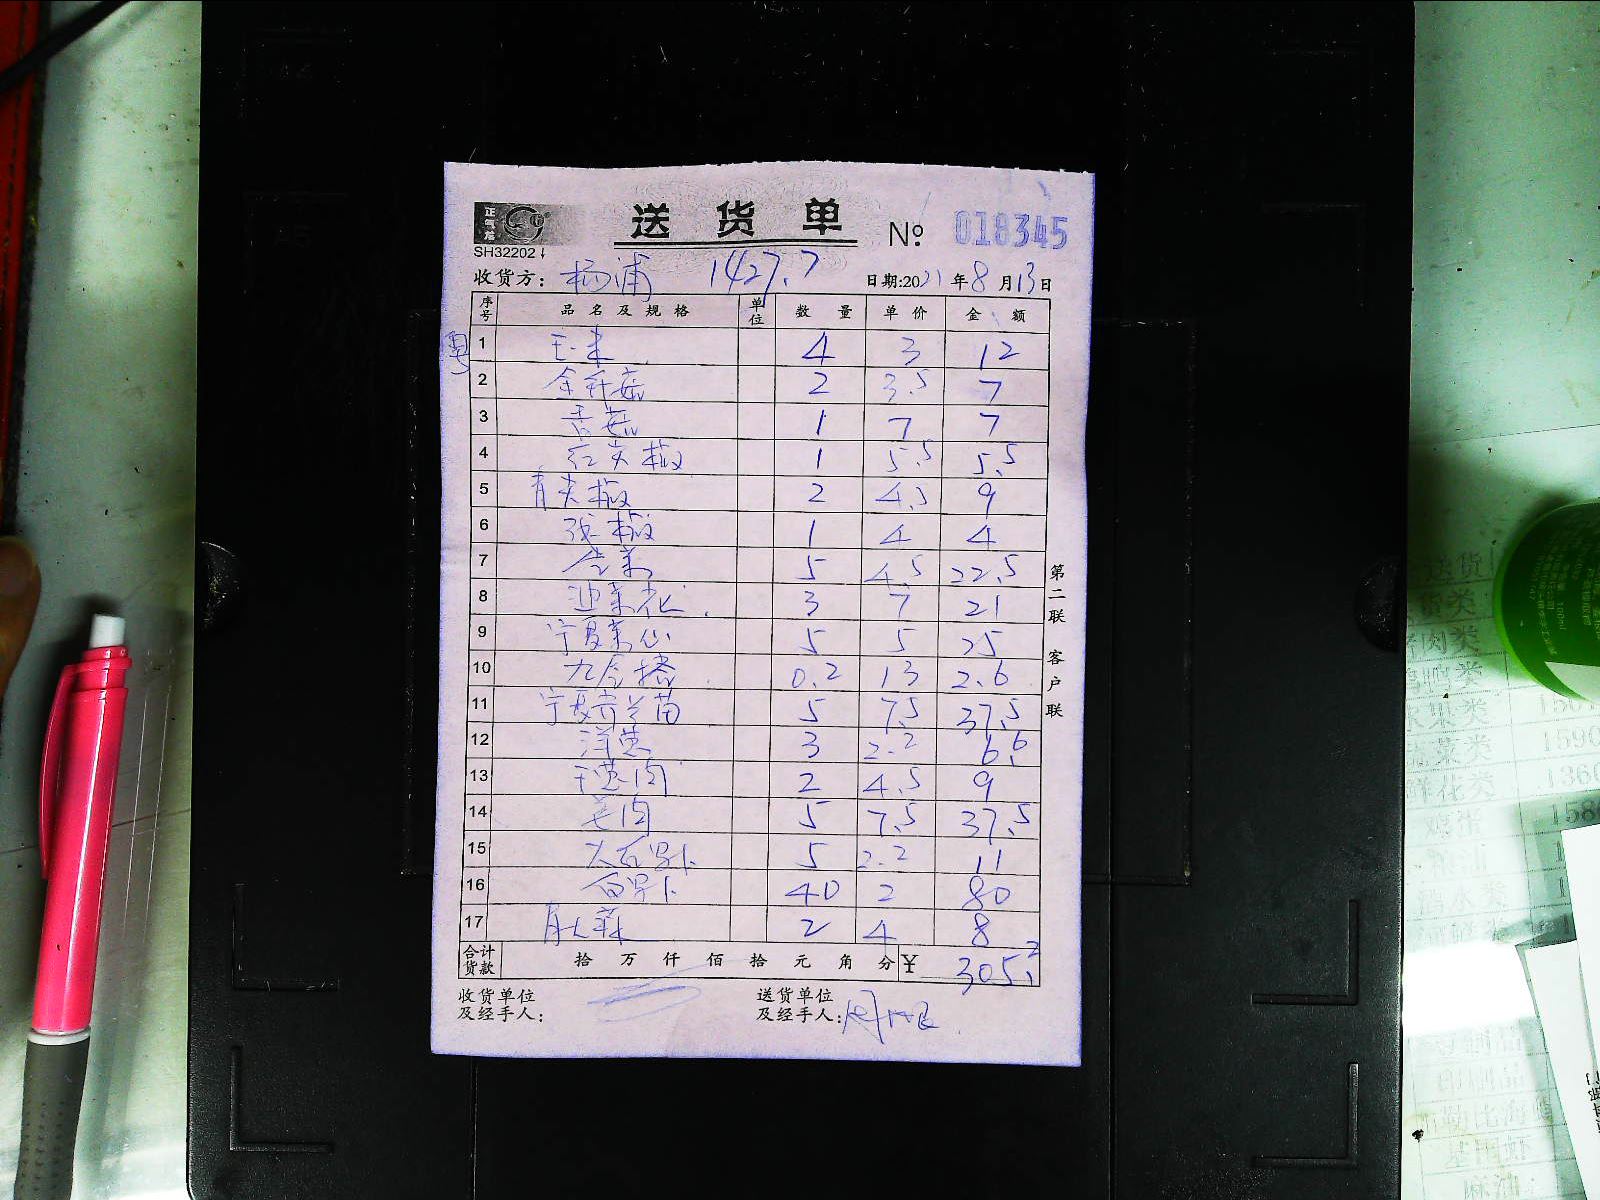 正氣龙
送货单 № 018345
SH32202
收货方: 杨浦 1427.7 日期:2021年8月13日
序号 品名及规格 单位 数量 单价 金额
1 玉米 4 3 12
2 金针菇 2 3.5 7
3 香菇 1 7 7
4 红尖椒 1 5.5 5.5
5 青尖椒 2 4.5 9
6 线椒 1 4 4
7 生菜 5 4.5 22.5
8 3 7 21
9 宁夏菜心 5 5 25
10 九层塔 0.2 13 2.6
11 宁夏芥兰苗 5 7.5 37.5
12 洋葱 3 2.2 6.6
13 干葱肉 2 4.5 9
14 姜肉 5 7.5 37.5
15 5 2.2 11
16 白罗卜 40 2 80
17 2 4 8
合计货款 拾 万 仟 佰 拾 元 角 分 ¥ 305.2
收货单位及经手人: 送货单位及经手人:
第二联 客户联
送货
肉类
鸭类
水果类
蔬菜类 1590
鲜花类 1360
鸡
水类